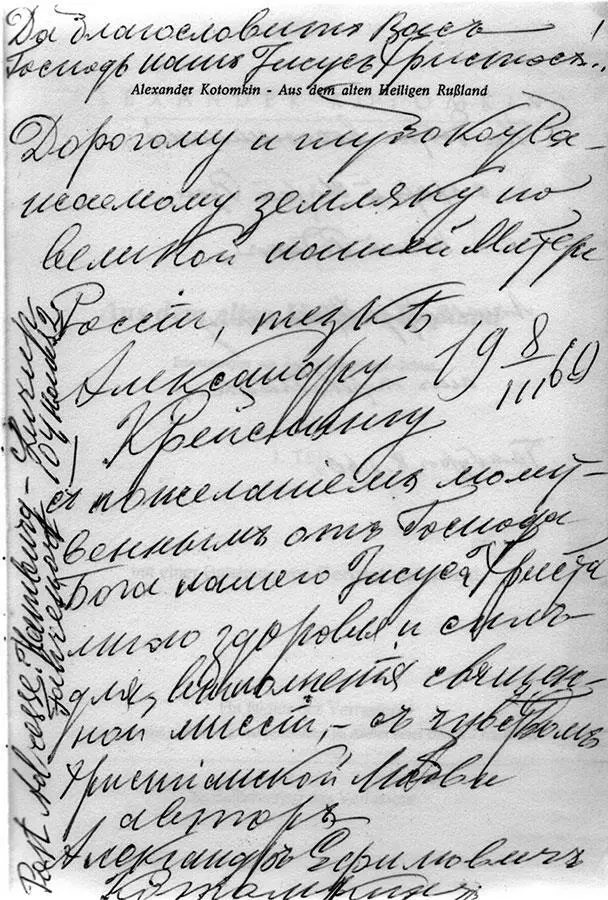 Да благословитъ Васъ
Господь нашъ Іисусъ Христосъ!..
Alexander Kotomkin - Aus dem alten Heiligen Rußland
Дорогому и глубокоува-
жаемому земляку по
великой нашей Матери
Россіи, тезкѣ
Александру 19 8/III 60
Крейслингу
съ пожеланіемъ молит-
веннымъ отъ Господа
Бога нашего Іисуса Христа
много здоровья и силъ
для выполненія священ-
ной миссіи, - съ чувствомъ
Христіанской Любви
авторъ
Александръ Ефимовичъ
Котомкинъ
Post Adresse: Hamburg -
104